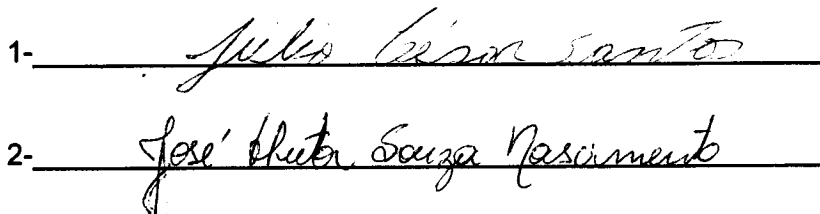 1- Júlio César Santos
2- José Souza Nascimento